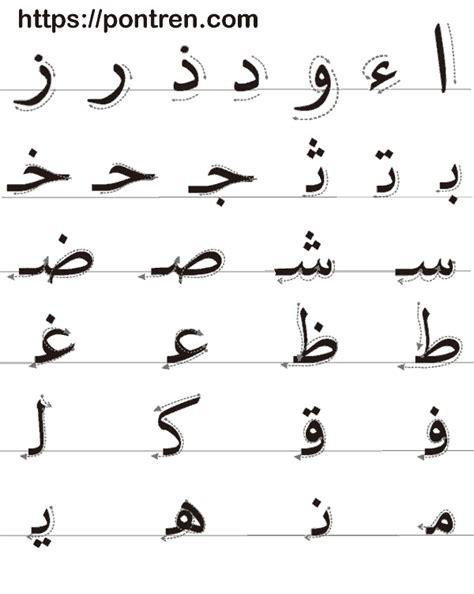 https://pontren.com
ا ء و د ذ ر ز
بـ تـ ثـ جـ حـ خـ
سـ شـ صـ ضـ
طـ ظـ عـ غـ
فـ قـ كـ لـ
مـ نـ هـ يـ